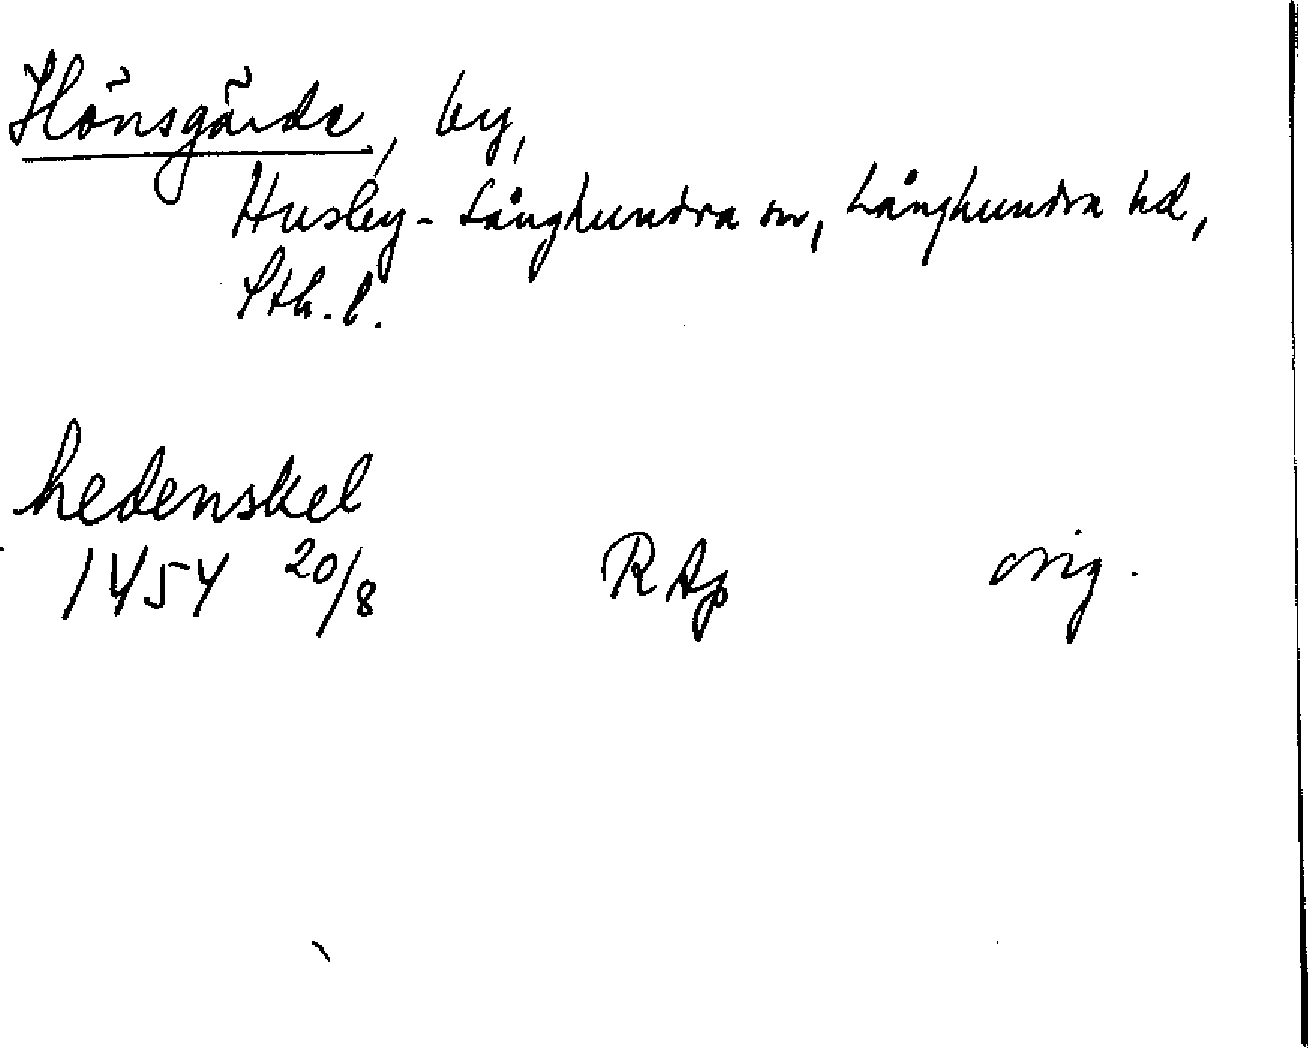 Hönsgärde, by,
Husby-Långhundra sn, Långhundra hd,
Sth. l.
hedenskel
1454 20/8 RAp orig.